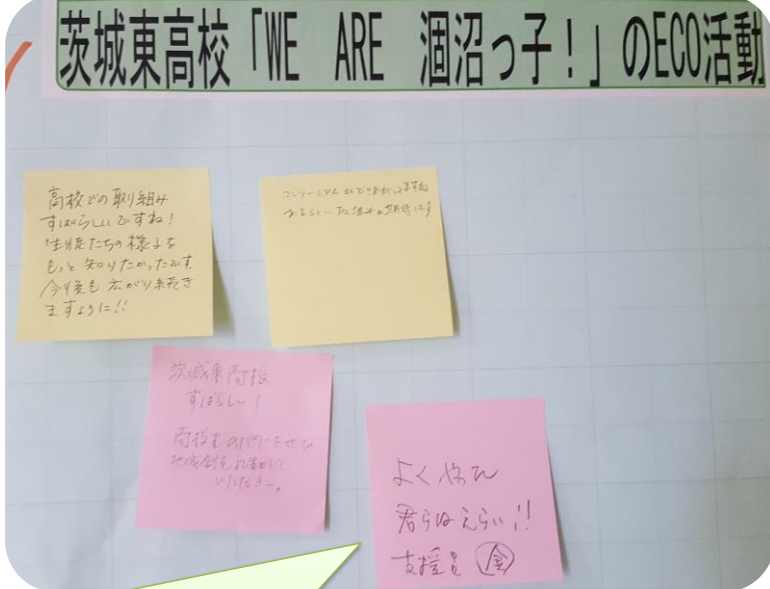 茨城東高校「WE ARE 涸沼っ子！」のECO活動
高校での取り組み
すばらしいですね！
生徒たちの様子を
もっと知りたかったです
今後も広がり続き
ますように!!
コンソーシアムができあがってますね
すばらしい
茨城東高校
すばらしい！
高校生のパワーをぜひ
地域創生に生かして
いただきたい。
よくやった
君らはえらい!!
支援員 金